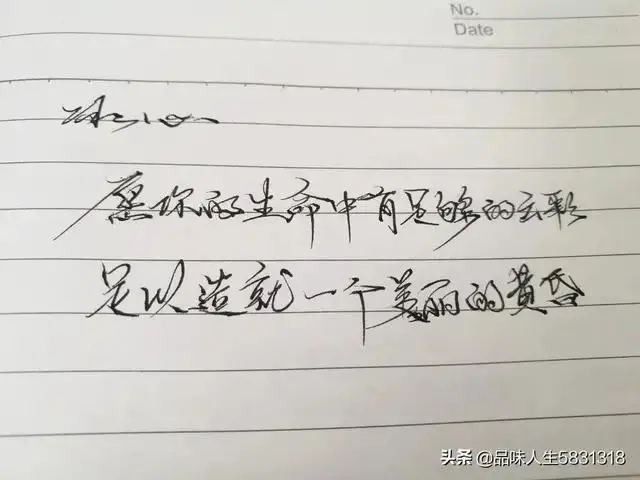 No.
Date
愿你的生命中有足够的云彩
足以造就一个美丽的黄昏
头条 @品味人生5831318